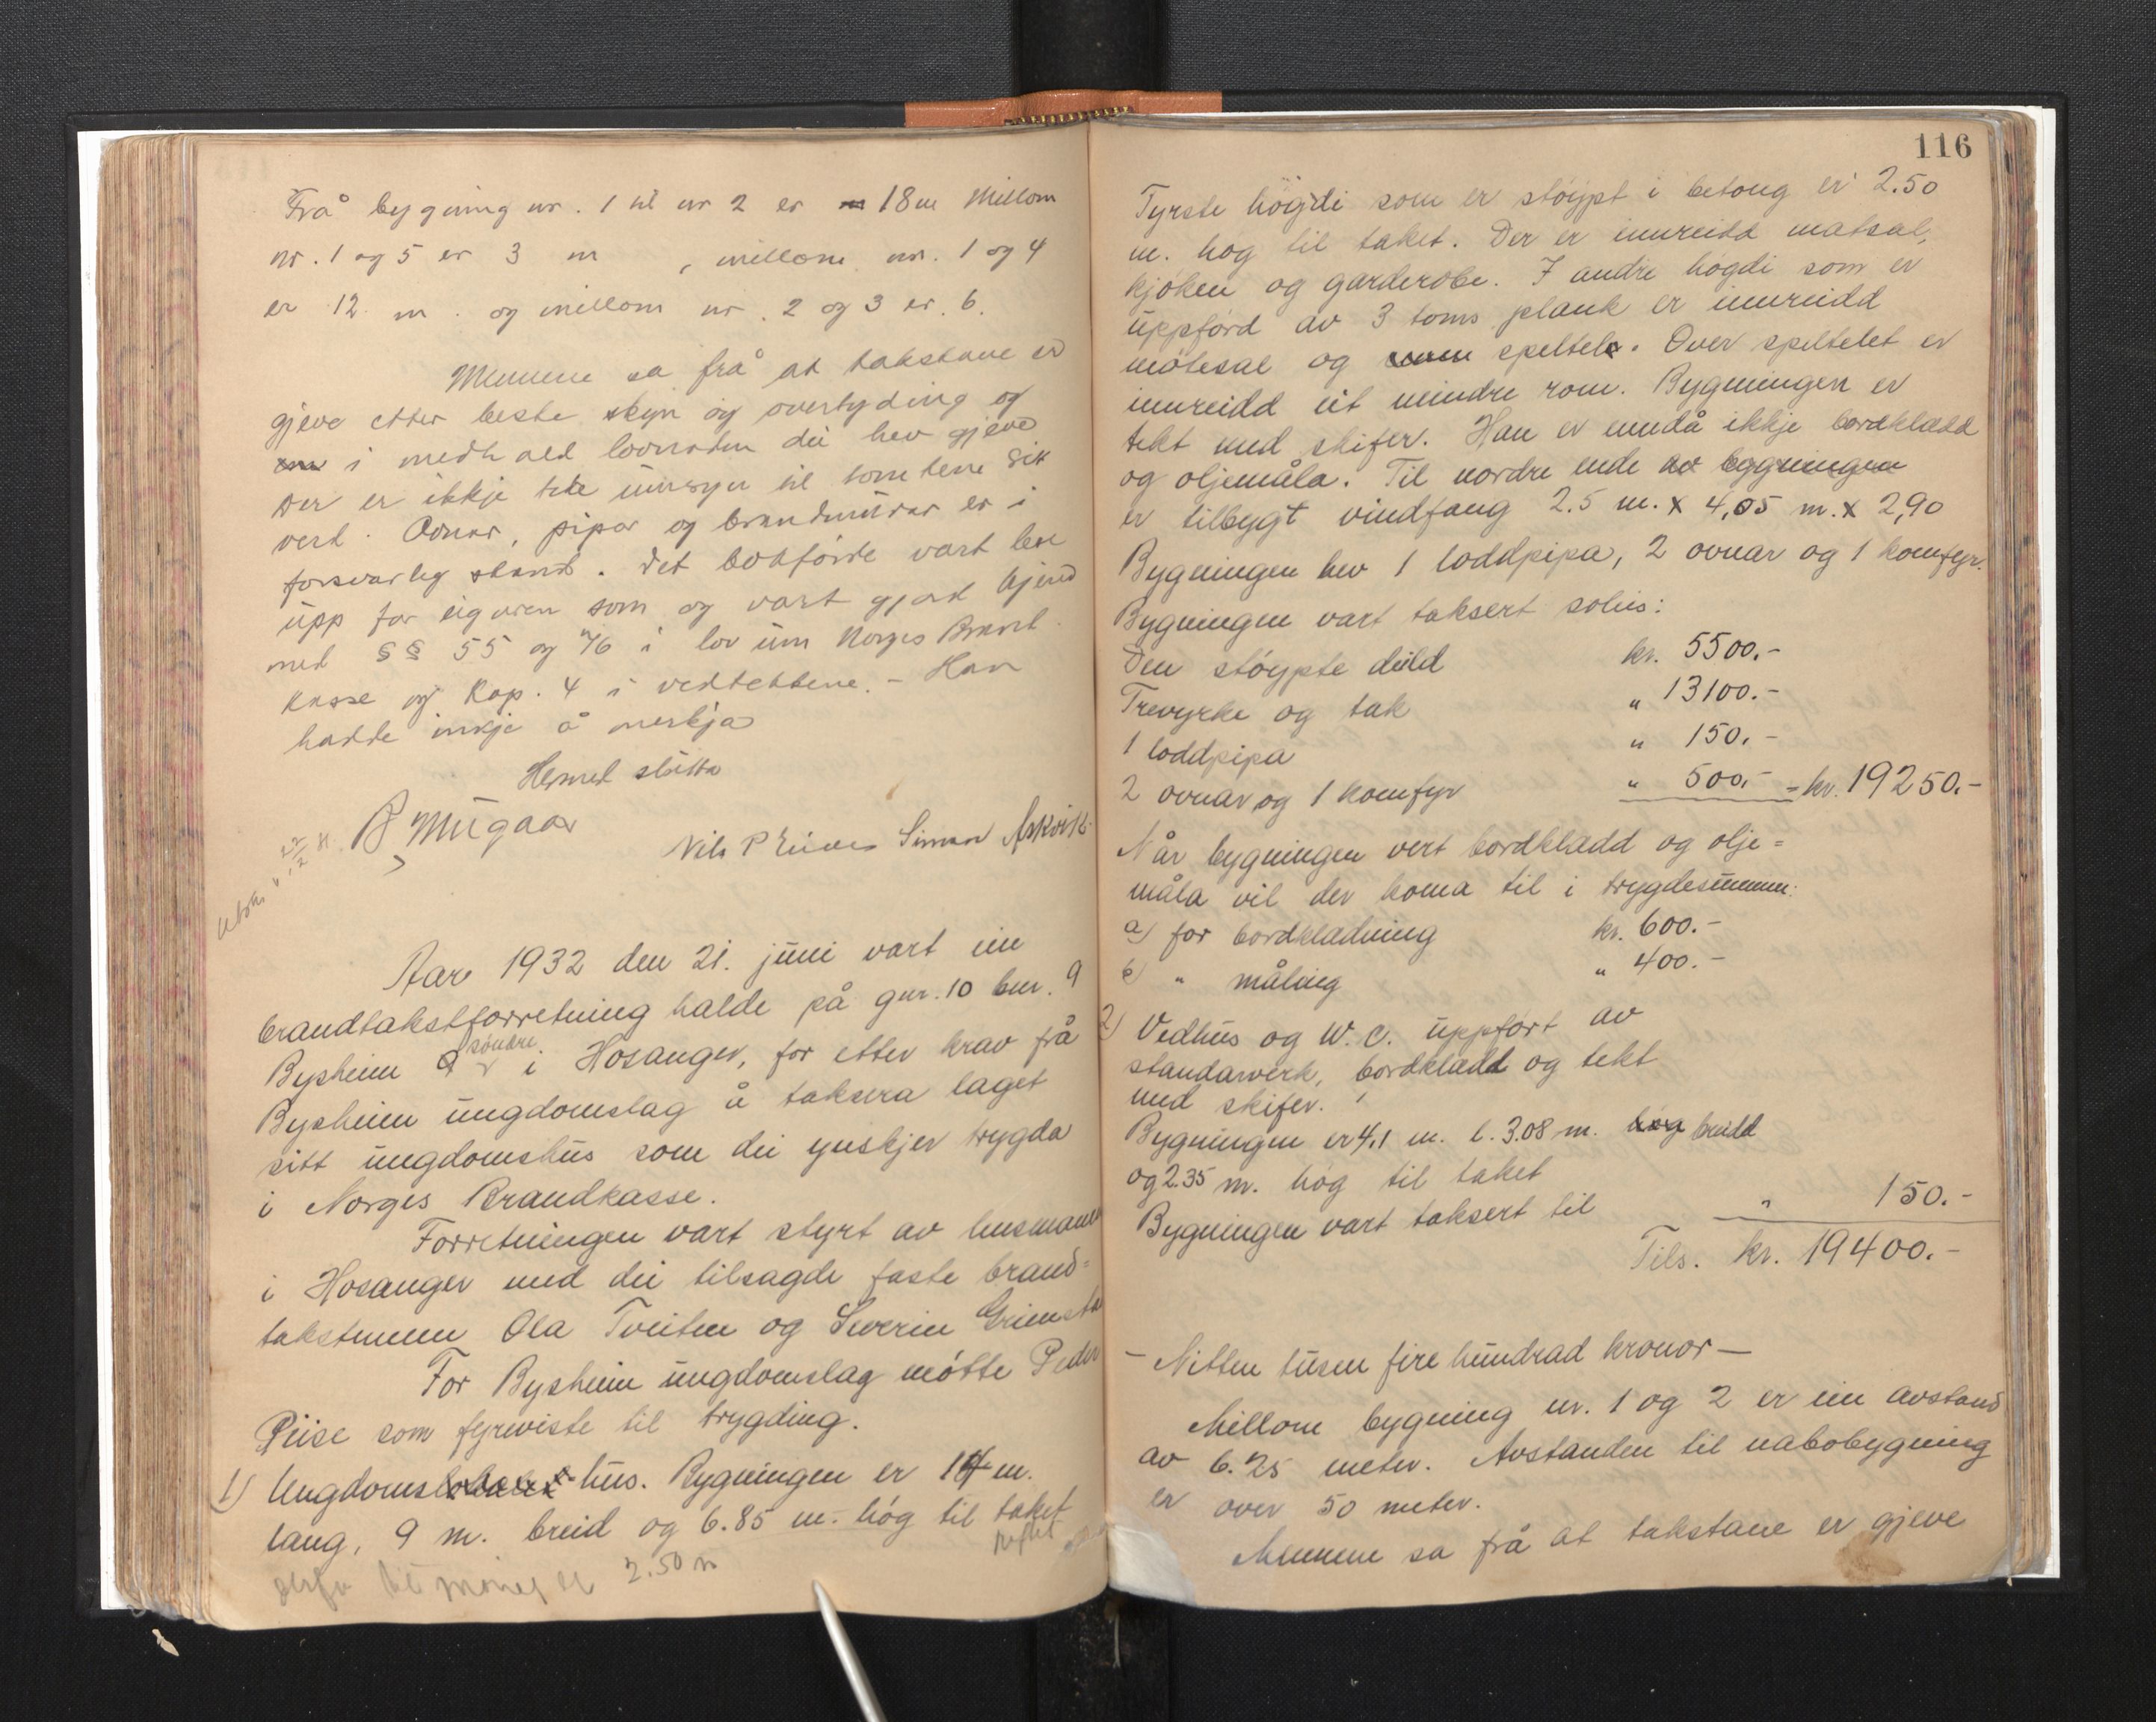 Frå bygning nr. 1 til nr 2 er 18 m Millom
nr. 1 og 5 er 3 m , millom nr. 1 og 4
er 12. m. og millom nr. 2 og 3 er 6.
Mennene sa frå at takstane er
gjeve etter beste skyn og overtyding og
i medhald lovnaden dei hev gjeve
Der er ikkje tete innsyn til tomtene sik
vert. Ovnar, pipor og brandmurar er i
forsvarleg stand. Det bokførde vart lese
upp for eigaren som og vart gjort kjend
med §§ 55 og 76 i lov um Norges Brand
kasse og Kap. 4 i vedtektene. - Han
hadde inkje å merkja
Hermed slutta
B Mugaas
Nils P Simon Askvik.
Aar 1932 den 21. juni vart ein
brandtakstforretning halde på gnr. 10 bnr. 9
Bysheim søndre i Hosanger, for etter krav frå
Bysheim ungdomslag å taksera laget
sitt ungdomshus som dei ynskjer trygda
i Norges Brandkasse.
Forretningen vart styrt av lensmannen
i Hosanger med dei tilsagde faste brand=
takstmenn Ola Tveiten og Severin Grimsta
For Bysheim ungdomslag møtte Peder
Riise som fyreviste til trygding.
1) Ungdoms hus. Bygningen er 14 m.
lang, 9 m. breid og 6.85 m. høg til taket
til møne er 2.50 m
116
Fyrste høgdi som er støypt i betong er 2.50
m. høg til taket. Der er innreidd matsal,
kjøken og garderobe. I andre høgdi som er
uppførd av 3 toms plank er innreidd
møtesal og speltele. Over speltelet er
innreidd eit mindre rom. Bygningen er
tekt med skifer. Han er enndå ikkje bordklædd
og oljemåla. Til nordre ende av bygningen
er tilbygt vindfang 2.5 m. x 4,05 m. x 2,90
Bygningen hev 1 loddpipa, 2 ovnar og 1 komfyr.
Bygningen vart taksert soleis:
Den støypte deild kr. 5500.-
Trevyrke og tak " 13100.-
1 loddpipa " 150.-
2 ovnar og 1 komfyr " 500.- = kr. 19250.-
Når bygningen vert bordklædd og olje=
måla vil der koma til i trygdesummen:
a) for bordklædning kr. 600.-
b) " måling " 400.-
2) Vedhus og W. C. uppført av
standarverk, bordklædd og tekt
med skifer.
Bygningen er 4,1 m. l. 3.08 m. høg breidd
og 2.35 m. høg til taket
Bygningen vart taksert til " 150.-
Tils. kr. 19400.-
- Nitten tusen fire hundrad kronor -
Millom bygning nr. 1 og 2 er ein avstand
av 6.25 meter. Avstanden til nabobygning
er over 50 meter.
Mennene sa frå at takstane er gjeve